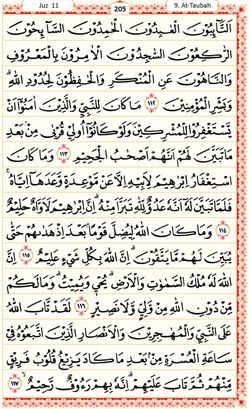 Juz 11
205
9. At-Taubah
اَلتَّآئِبُوْنَ الْعٰبِدُوْنَ الْحٰمِدُوْنَ السَّآئِحُوْنَ
الرّٰكِعُوْنَ السّٰجِدُوْنَ الْاٰمِرُوْنَ بِالْمَعْرُوْفِ
وَالنَّاهُوْنَ عَنِ الْمُنْكَرِ وَالْحٰفِظُوْنَ لِحُدُوْدِ اللّٰهِ ۗ
وَبَشِّرِ الْمُؤْمِنِيْنَ ١١٢ مَا كَانَ لِلنَّبِيِّ وَالَّذِيْنَ اٰمَنُوْٓا اَنْ
يَّسْتَغْفِرُوْا لِلْمُشْرِكِيْنَ وَلَوْ كَانُوْٓا اُولِيْ قُرْبٰى مِنْۢ بَعْدِ
مَا تَبَيَّنَ لَهُمْ اَنَّهُمْ اَصْحٰبُ الْجَحِيْمِ ١١٣ وَمَا كَانَ
اسْتِغْفَارُ اِبْرٰهِيْمَ لِاَبِيْهِ اِلَّا عَنْ مَّوْعِدَةٍ وَّعَدَهَآ اِيَّاهُ ۚ
فَلَمَّا تَبَيَّنَ لَهٗٓ اَنَّهٗ عَدُوٌّ لِّلّٰهِ تَبَرَّاَ مِنْهُ ۗ اِنَّ اِبْرٰهِيْمَ لَاَوَّاهٌ حَلِيْمٌ
١١٤ وَمَا كَانَ اللّٰهُ لِيُضِلَّ قَوْمًاۢ بَعْدَ اِذْ هَدٰىهُمْ حَتّٰى
يُبَيِّنَ لَهُمْ مَّا يَتَّقُوْنَ ۗ اِنَّ اللّٰهَ بِكُلِّ شَيْءٍ عَلِيْمٌ ١١٥ اِنَّ
اللّٰهَ لَهٗ مُلْكُ السَّمٰوٰتِ وَالْاَرْضِ ۗ يُحْيٖ وَيُمِيْتُ ۗ وَمَا لَكُمْ
مِّنْ دُوْنِ اللّٰهِ مِنْ وَّلِيٍّ وَّلَا نَصِيْرٍ ١١٦ لَقَدْ تَّابَ اللّٰهُ
عَلَى النَّبِيِّ وَالْمُهٰجِرِيْنَ وَالْاَنْصَارِ الَّذِيْنَ اتَّبَعُوْهُ فِيْ
سَاعَةِ الْعُسْرَةِ مِنْۢ بَعْدِ مَا كَادَ يَزِيْغُ قُلُوْبُ فَرِيْقٍ
مِّنْهُمْ ثُمَّ تَابَ عَلَيْهِمْ ۗ اِنَّهٗ بِهِمْ رَءُوْفٌ رَّحِيْمٌ ١١٧